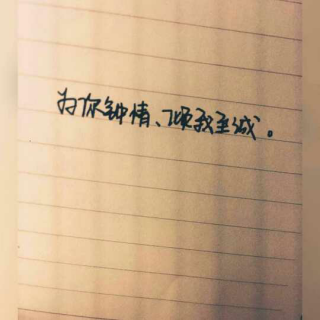 为你钟情、倾我至诚。